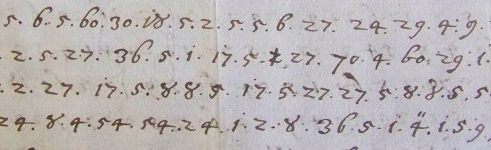 5. 6. 5. 60. 30. 18. 5. 2. 5. 5. 6. 27. 24. 29. 4. 9.
. 2. 5. 27. 36. 5. 1. 17. 5. 27. 70. 4. 60. 29. 1.
. 2. 27. 17. 5. 8. 8. 5. 17. 5. 27. 27. 5. 8. 8. 5. 5.
24. 8. 4. 54. 54. 24. 1. 2. 8. 36. 5. 1. 4. 1. 5. 9